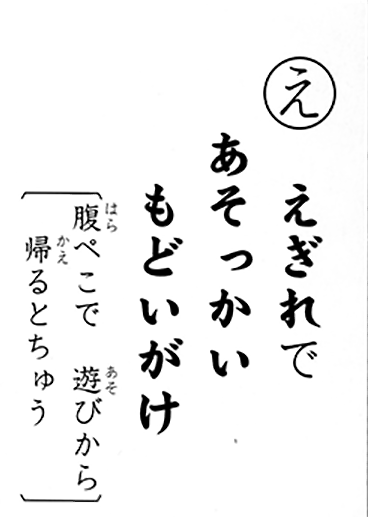 え
えぎれで
あそっかい
もどいがけ
腹ぺこで　遊びから
帰るとちゅう
はら
あそ
かえ